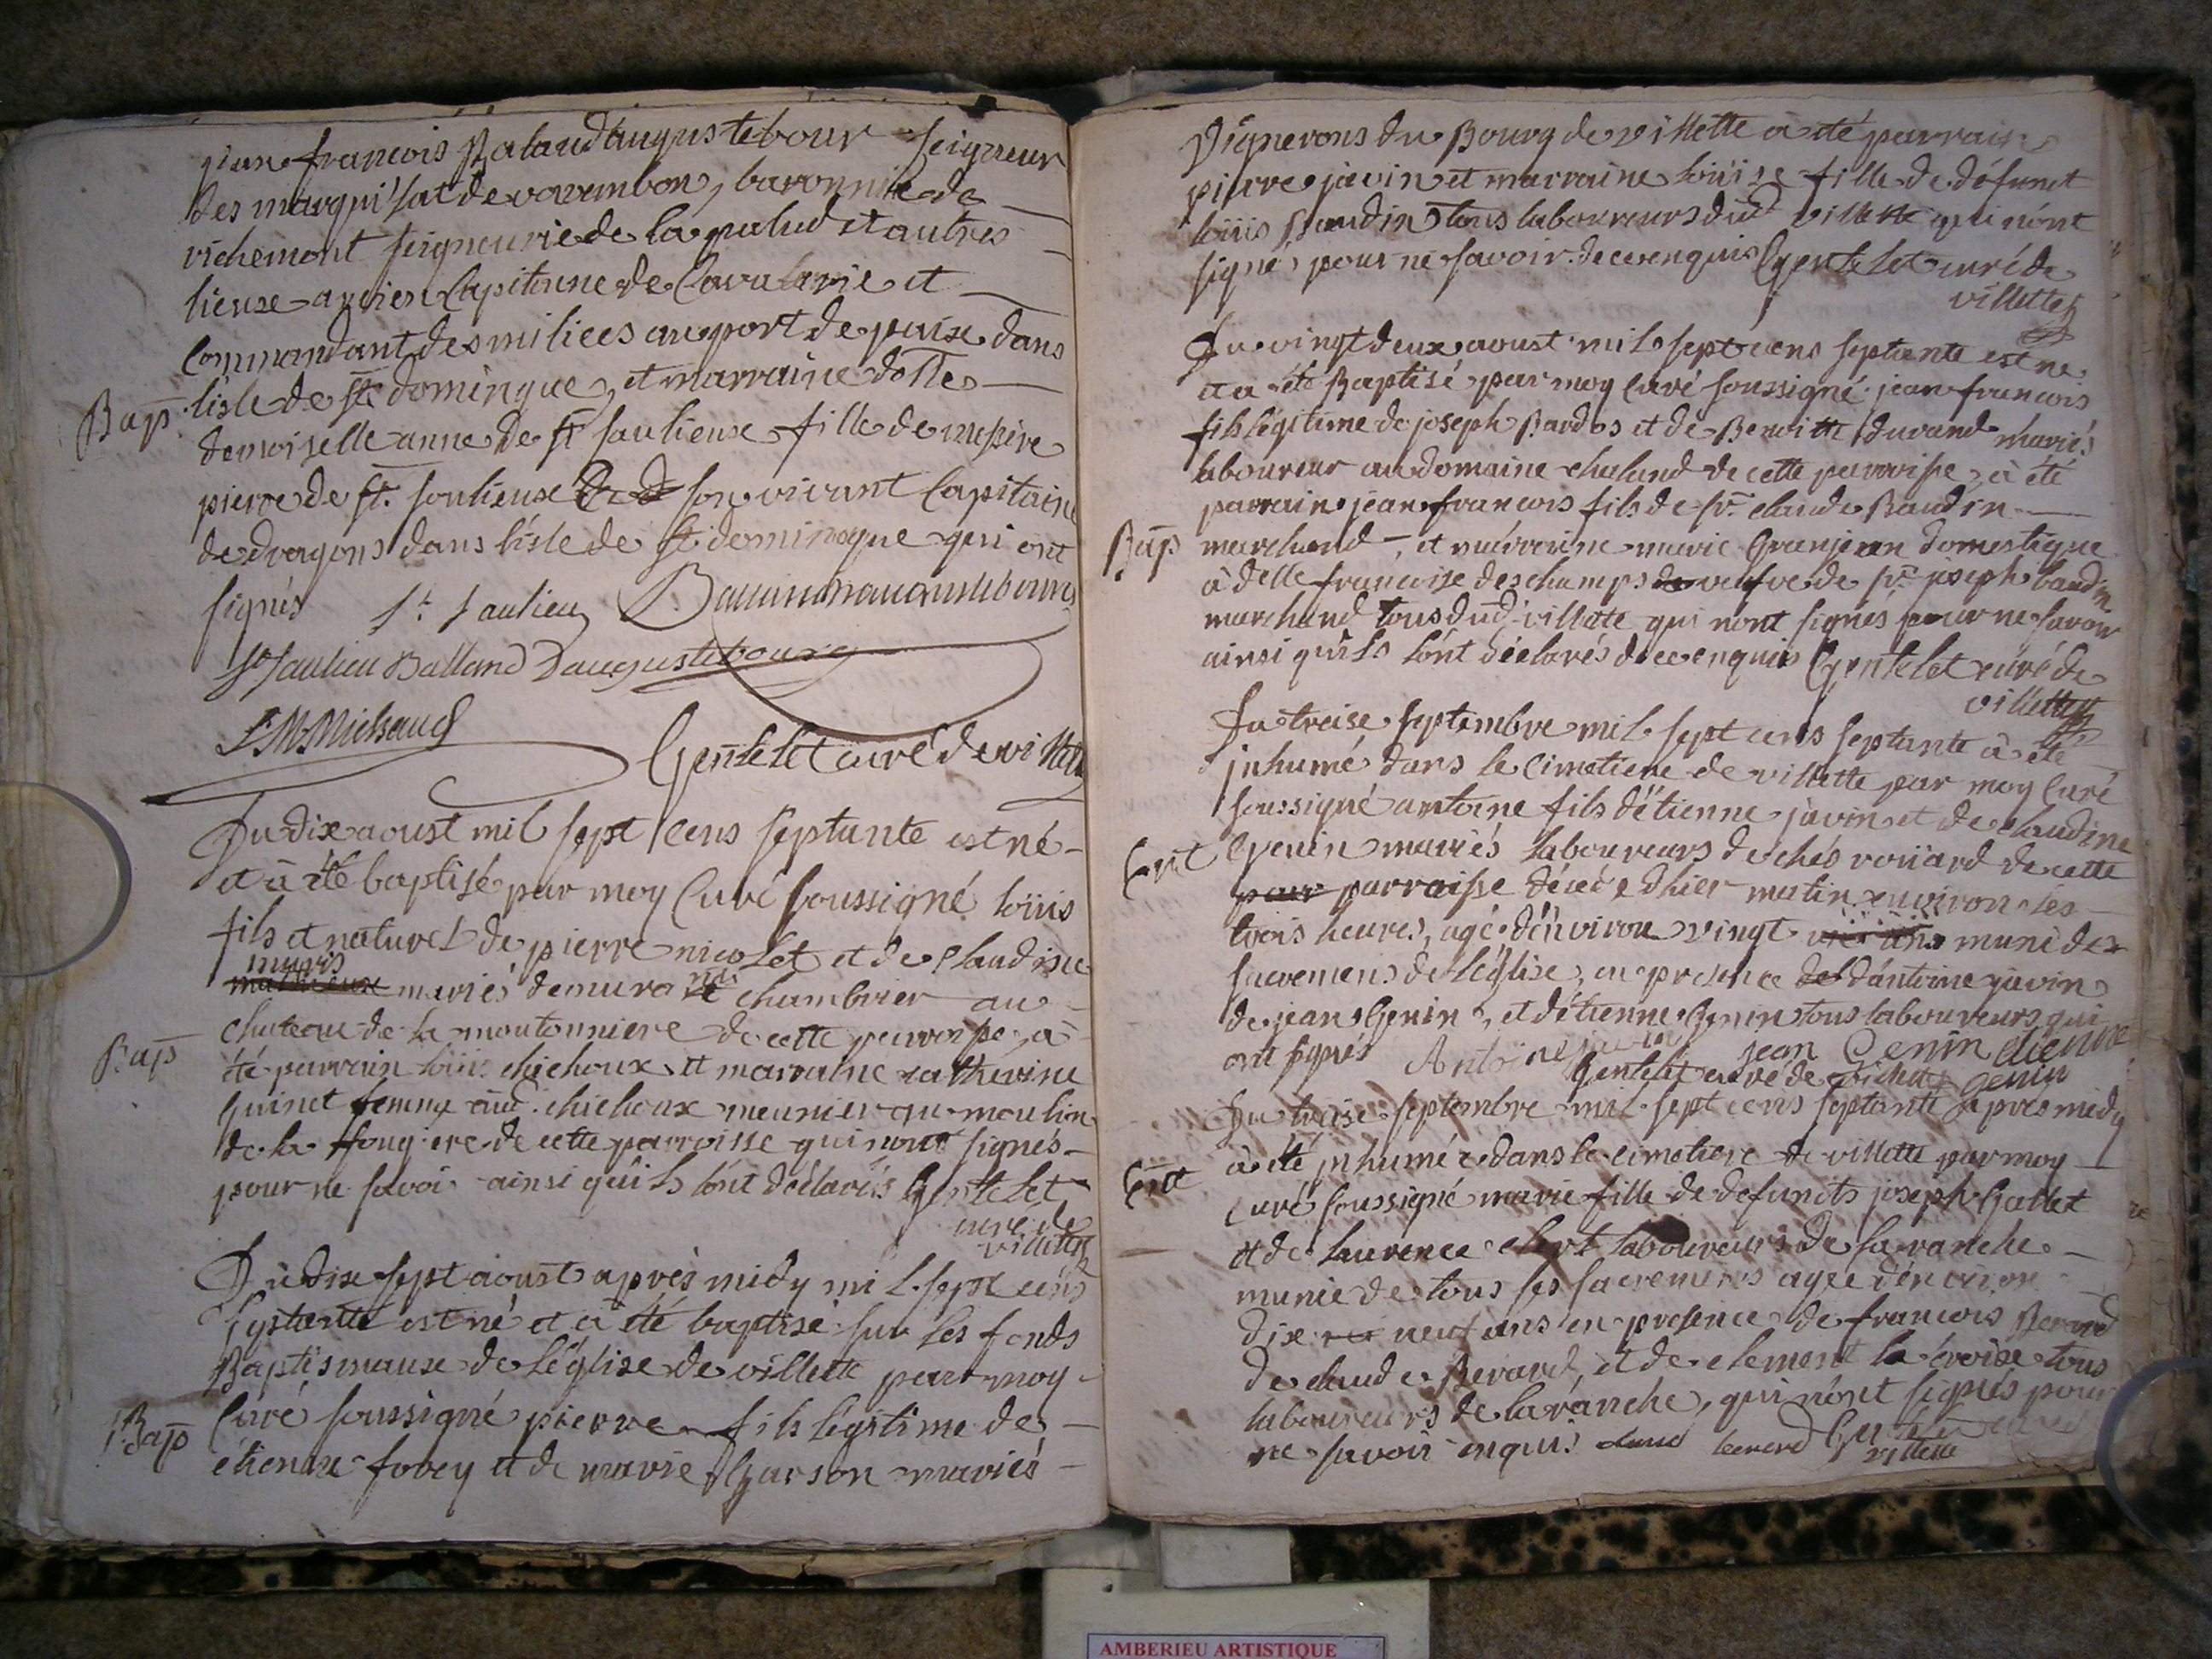 jean francois Balaud daugustebour seigneur
des marquisat de varambon, baronnie de
richemont seigneurie de la palud et autres
lieux ancien Capitaine de Cavalerie et
Commandant des milices au port de paix dans
Bap. lisle de st domingue, et marraine delle
demoiselle anne de st saulieux fille de messire
pierre de st. saulieux son vivant Capitaine
de dragons dans l'isle de st domingue qui ont
signés St Saulieu
St Saulieu Balland Daugustebourg
Michaud
Gentelet curé de villette
Du dix aoust mil sept cens septante est né
et à été baptisé par moy Curé soussigné loüis
fils et naturel de pierre nicolet et de Claudine
maris
mariés demurant chambrier au
chateau de la moutonniere de cette parroisse, à
Bap été parrain loüis chichoux et marraine catherine
Guinet femme dud. chichoux meunier au moulin
de la fougiere de cette parroisse qui n'ont signés
pour ne savoir ainsi qu'ils l'ont déclarés Gentelet
curé de
villette
Du dix sept aoust après midy mil sept cens
septante est né et à été baptisé sur les fonds
Baptismaux de l'église de villette par moy
Bap Curé soussigné pierre fils légitime de
étienne fovey et de marie Garson mariés
Vignerons du Bourg de villette à été parrain
pierre javin et marraine loüise fille de défunct
loüis Baudin tous laboureurs dud villette qui n'ont
signé pour ne savoir de ce enquis Gentelet curé de
villette
Du vingt deux aoust mil sept cens septante est né
et a été Baptisé par moy Curé soussigné jean francois
fils légitime de joseph Bardos et de Benoitte durand mariés
laboureur au domaine chaland de cette parroisse, à été
parrain jean francois fils de sr. claude Baudin
Bap marchand, et marraine marie Granjean domestique
à delle francoise deschamps veufve de sr. joseph baudin
marchand tous dud. villette qui n'ont signés pour ne savoir
ainsi qu'ils l'ont déclarés de ce enquis Gentelet curé de
villette
Du treise septembre mil sept cens septante à été
inhumé dans le cimetiere de villette par moy Curé
soussigné antoine fils d'étienne javin et de claudine
Ent Genin mariés laboureurs de chés roüard de cette
parroisse décedé d'hier matin environ les
trois heures, agé d'environ vingt muni des
sacremens de l'église, en presence d'antoine javin
de jean Genin, et d'étienne Genin tous laboureurs qui
ont signés Antoine javin jean Genin etienne
Gentelet curé de villette genin
Du treise septembre mil sept cens septante apres midy
à été inhumée dans le cimetiere de villette par moy
Ent curé soussigné marie fille de defuncts joseph Gallet
et de laurence clert laboureurs de la ranche
munie de tous ses sacremens agée d'environ
dix neuf ans en presence de francois Berard
de claude Berard, et de clement la croix tous
laboureurs de la ranche, qui n'ont signés pour
ne savoir enquis
villette
AMBERIEU ARTISTIQUE